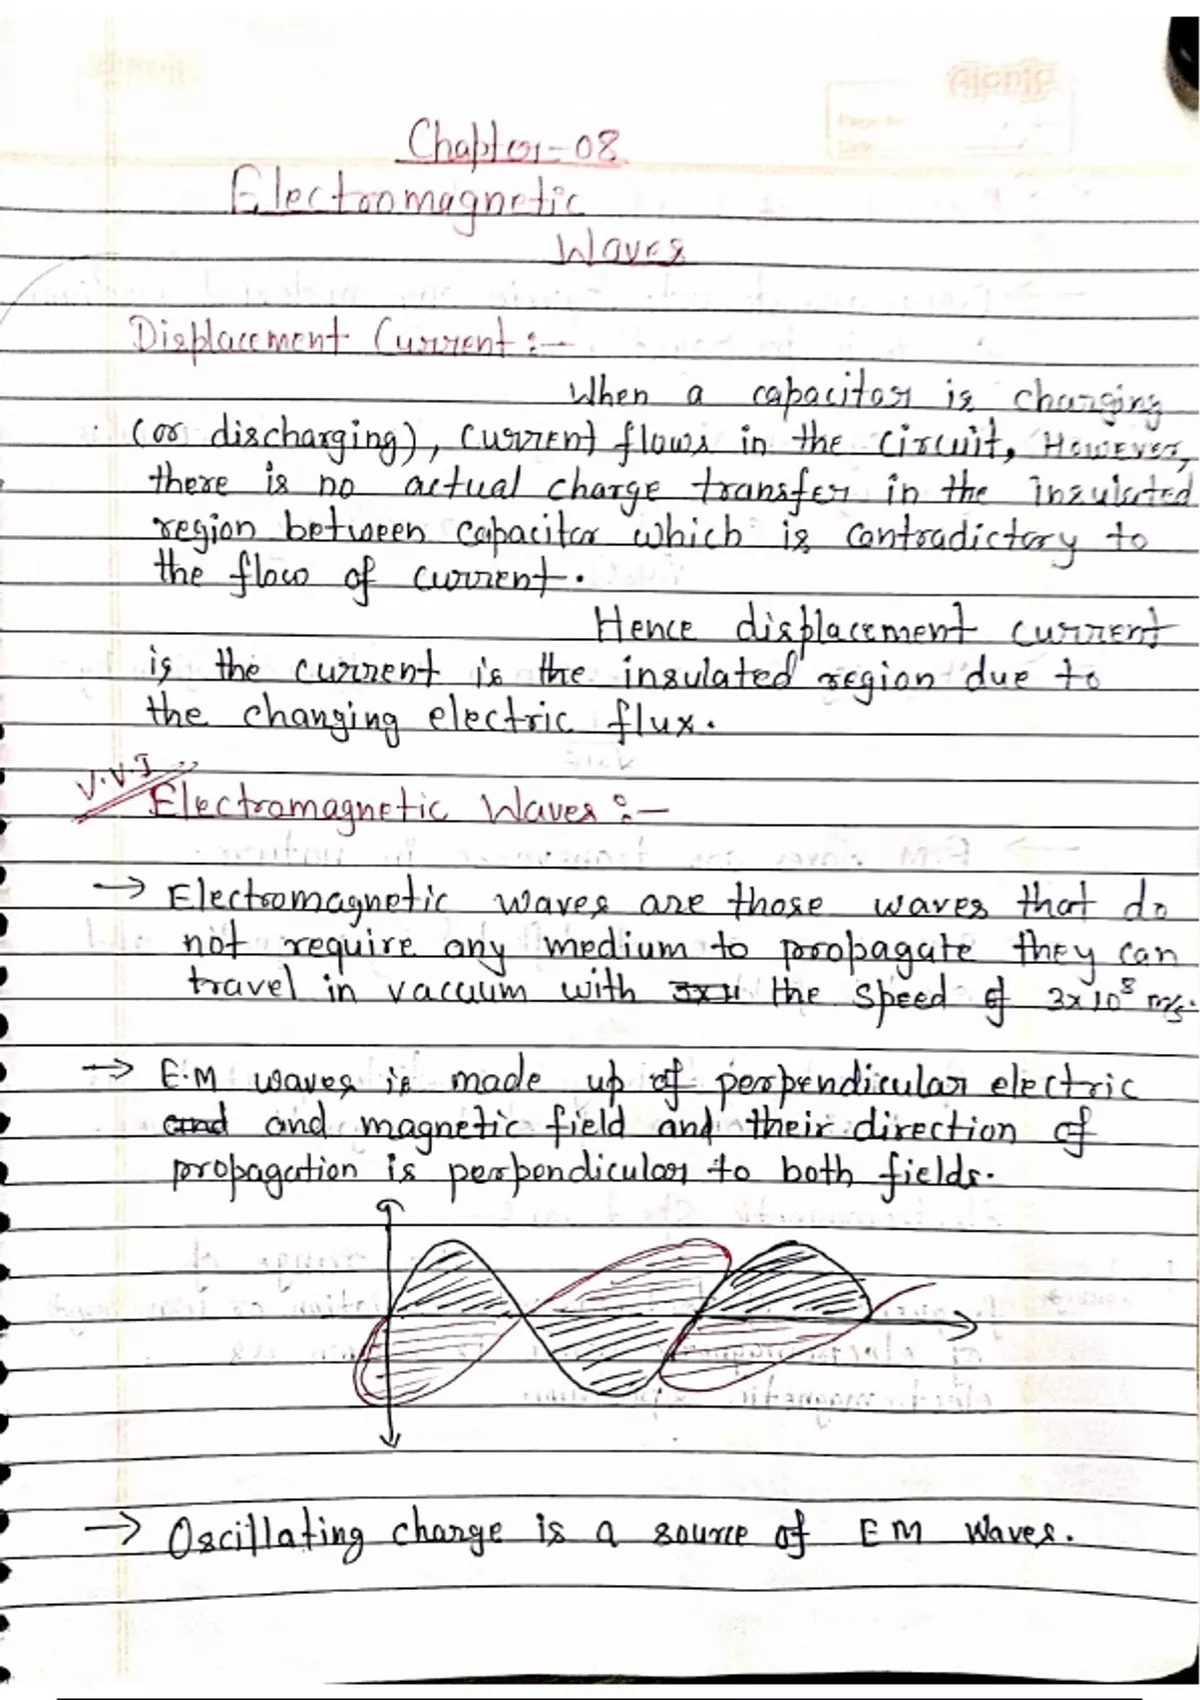 Chapter-08
Electromagnetic
Waves
Displacement Current :-
When a capacitor is charging
(or discharging), current flows in the circuit, However,
there is no actual charge transfer in the insulated
region between capacitor which is contradictory to
the flow of current.
Hence displacement current
is the current is the insulated region due to
the changing electric flux.
V.V.I
Electromagnetic Waves :-
→ Electromagnetic waves are those waves that do
not require any medium to propagate they can
travel in vacuum with the speed of 3x10⁸ m/s.
→ E.M waves is made up of perpendicular electric
and and magnetic field and their direction of
propagation is perpendicular to both fields.
→ Oscillating charge is a source of EM waves.